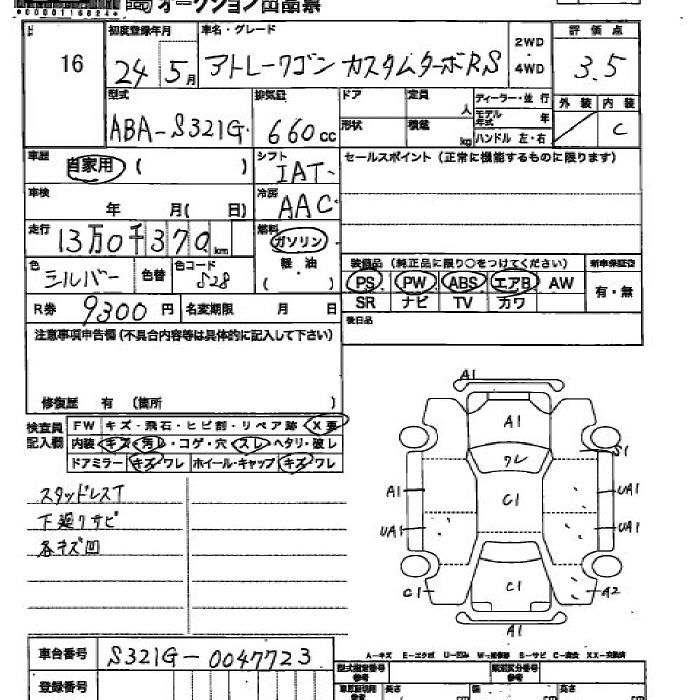 オークション出品票
16
初度登録年月
24年5月
車名・グレード
アトレーワゴン カスタムターボRS
2WD・4WD
評価点
3.5
型式
ABA-S321G
排気量
660cc
ドア
定員 人
形状
積載 kg
ディーラー・並行
モデル年式 年
ハンドル 左・右
外装 内装
C
車歴
自家用 ( )
シフト
IAT
セールスポイント (正常に機能するものに限ります)
車検
年 月( 日)
冷房
AAC
走行
13万0千370km
燃料
ガソリン
軽・油
( )
色
シルバー
色替
色コード
S28
装備品 (純正品に限り○をつけてください)
PS PW ABS エアB AW
SR ナビ TV カワ
新車保証書
有・無
R券 9300円
名変期限 月 日
後日品
注意事項申告欄(不具合内容等は具体的に記入して下さい)
修復歴 有 (箇所 )
検査員記入欄
FW キズ・飛石・ヒビ割・リペア跡・X要
内装・キズ・汚レ・コゲ・穴・スレ・ヘタリ・破レ
ドアミラー キズ・ワレ ホイール・キャップ キズ・ワレ
スタッドレスT
下廻りサビ
各キズ凹
A1
A1
ワレ
S1
A1
C1
UA1
UA1
UA1
C1
C1
A2
A1
車台番号
S321G-0047723
A-キズ E-エクボ U-凹み W-補修跡 S-サビ C-腐食 XX-交換済
登録番号
型式指定番号
参考
類別区分番号
参考
長さ
幅
高さ